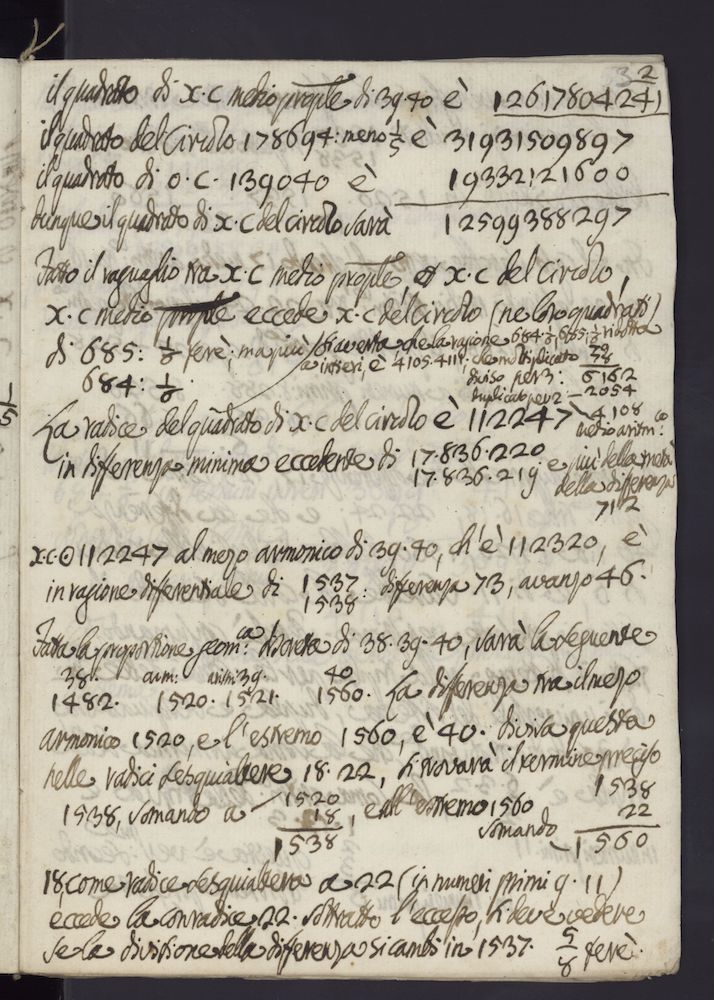 32
il quadrato di x.c medio prop.le di 39.40 è 12617804241
il quadrato del Circolo 178694: meno 1/5 è 31931509897
il quadrato di o.c. 139040 è 19332121600
dunque il quadrato di x.c del circolo sarà 12599388297
Fatto il raguaglio tra x.c medio prop.le, et x.c del circolo,
x.c medio prop.le eccede x.c del circolo (ne loro quadrati)
di 685: 1/8 ferè; ma più
684: 1/8
si averta che la ragione 684 1/8, 685 1/8 ridotta
a interi, è 4105. 4111. che moltiplicato
diviso per 3: 6162
duplicato per 2 – 2054
4108
medio aritm:co
La radice del quadrato di x.c del circolo è 112247
in differenza minima eccedente di 17.836.220
17.836.219
e più della metà
della differenza
712
x.c ⊙ 112247 al mezo armonico di 39.40, ch'è 112320, è
in ragione differentiale di 1537: differenza 73, avanzo 46.
1538
Fatta la proportione geom:ca discreta di 38.39.40, sarà la seguente
38. arm: aritm: 39. 40
1482. 1520. 1521. 1560. La differenza tra il mezo
armonico 1520, e l'estremo 1560, è 40. divisa questa
nelle radici sesquialtere 18.22, si trovarà il termine preciso
1538, somando a 1520, e all'estremo 1560 1538
18 somando 22
1538 1560
18, come radice sesquialtera a 22 (in numeri primi 9.11)
eccede la conradice 22. sottratto l'eccesso, si deve vedere
se la divisione della differenza si cambi in 1537. 5/8 ferè.
1/5